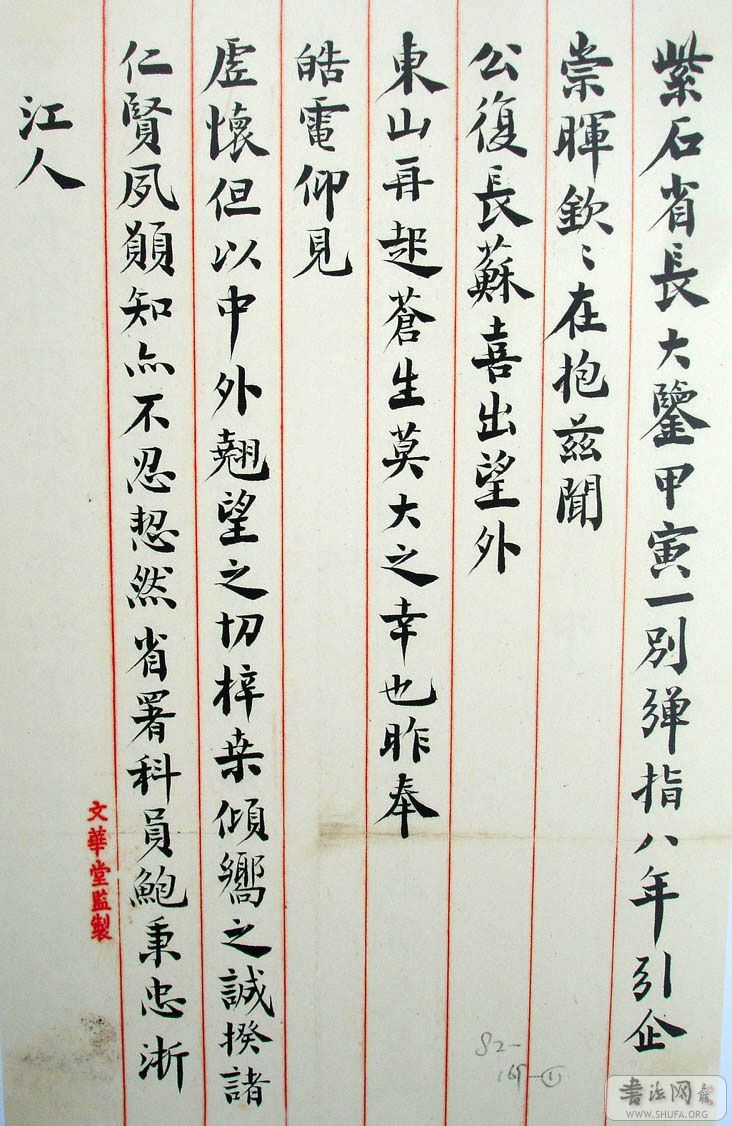 紫石省長大鑒甲寅一別彈指八年引企
崇暉欽〻在抱茲聞
公復長蘇喜出望外
東山再起蒼生莫大之幸也昨奉
皓電仰見
虛懷但以中外翹望之切梓桒傾嚮之誠揆諸
仁賢夙願知亦不忍恝然省署科員鮑秉忠浙
江人
文華堂監製
82-
169-①
书法网
WWW.SHUFA.ORG